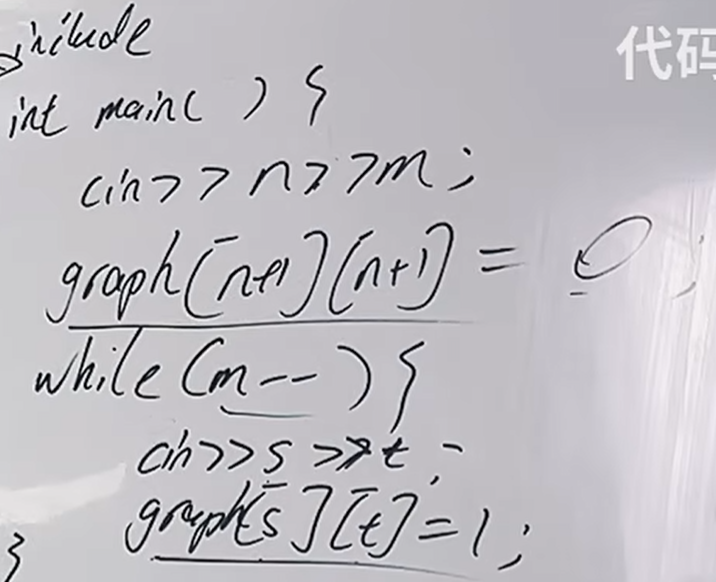 include
代码
int main( ) {
cin>>n>>m;
graph[n+1][n+1] = 0;
while(m--){
cin>>s>>t;
graph[s][t]=1;
}